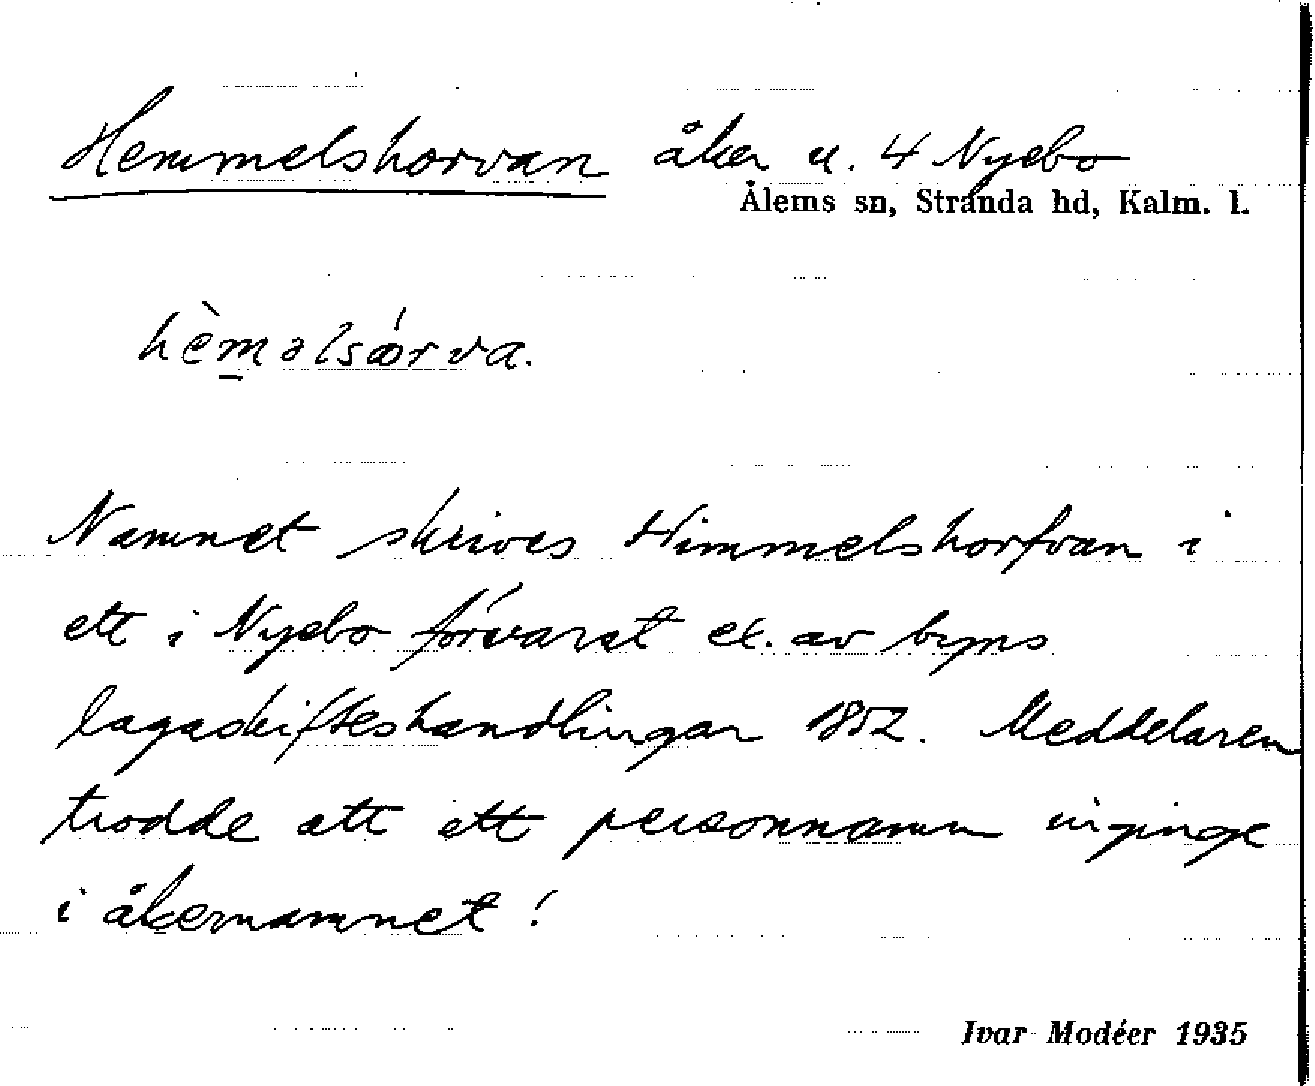 Hemmelshorvan åker u. 4 Nyebo
Ålems sn, Stranda hd, Kalm. l.
hèməlsórva.
Namnet skrives Himmelshorfvan i
ett i Nyebo förvarat ex. av byns
lagaskifteshandlingar 1852. Meddelaren
trodde att ett personnamn inginge
i åkernamnet!
Ivar Modéer 1935